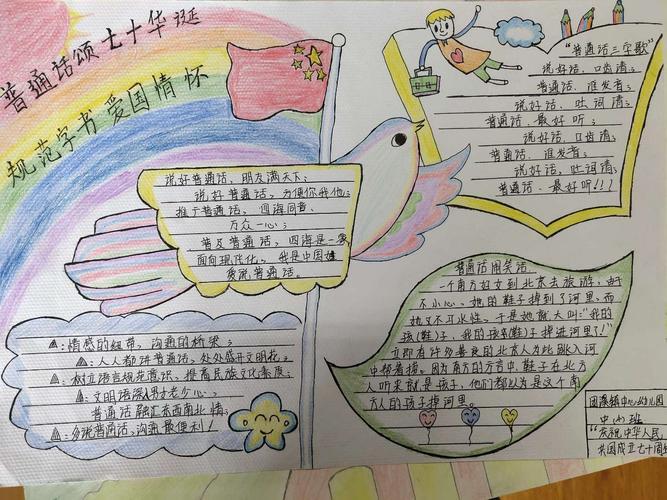 普通话颂七十华诞
规范字书爱国情怀
说好普通话，朋友满天下；
说好普通话，方便你我他；
推广普通话，四海同音、
万众一心；
普及普通话，四海是一家
面向现代化。我是中国娃
爱说普通话。
"普通话三字歌"
说好话、口齿清；
普通话、准发音；
说好话、吐词清；
普通话、最好听；
说好话、口齿清；
普通话、准发音；
说好话、吐词清；
普通话、最好听！！！
▲：情感的纽带，沟通的桥梁；
▲：人人都讲普通话，处处盛开文明花；
▲：树立语言规范意识，提高民族文化素质；
▲：文明语深入男女老少心，
普通话融汇东西南北情；
▲：多说普通话，沟通最便利！
普通话闹笑话
一个南方妇女到北京去旅游，由于
不小心，她的鞋子掉到了河里，而
她又不习水性。于是她就大叫："我的
孩(鞋)子，我的孩(鞋)子掉进河里了！"
立即有许多善良的北京人为此跳入河
中帮着捞。因为南方的方言中，鞋子在北方
人听来就是孩子，他们都以为是这个南
方人的孩子掉河里。
团溪镇中心幼儿园
中(4)班
"庆祝中华人民
共和国成立七十周年